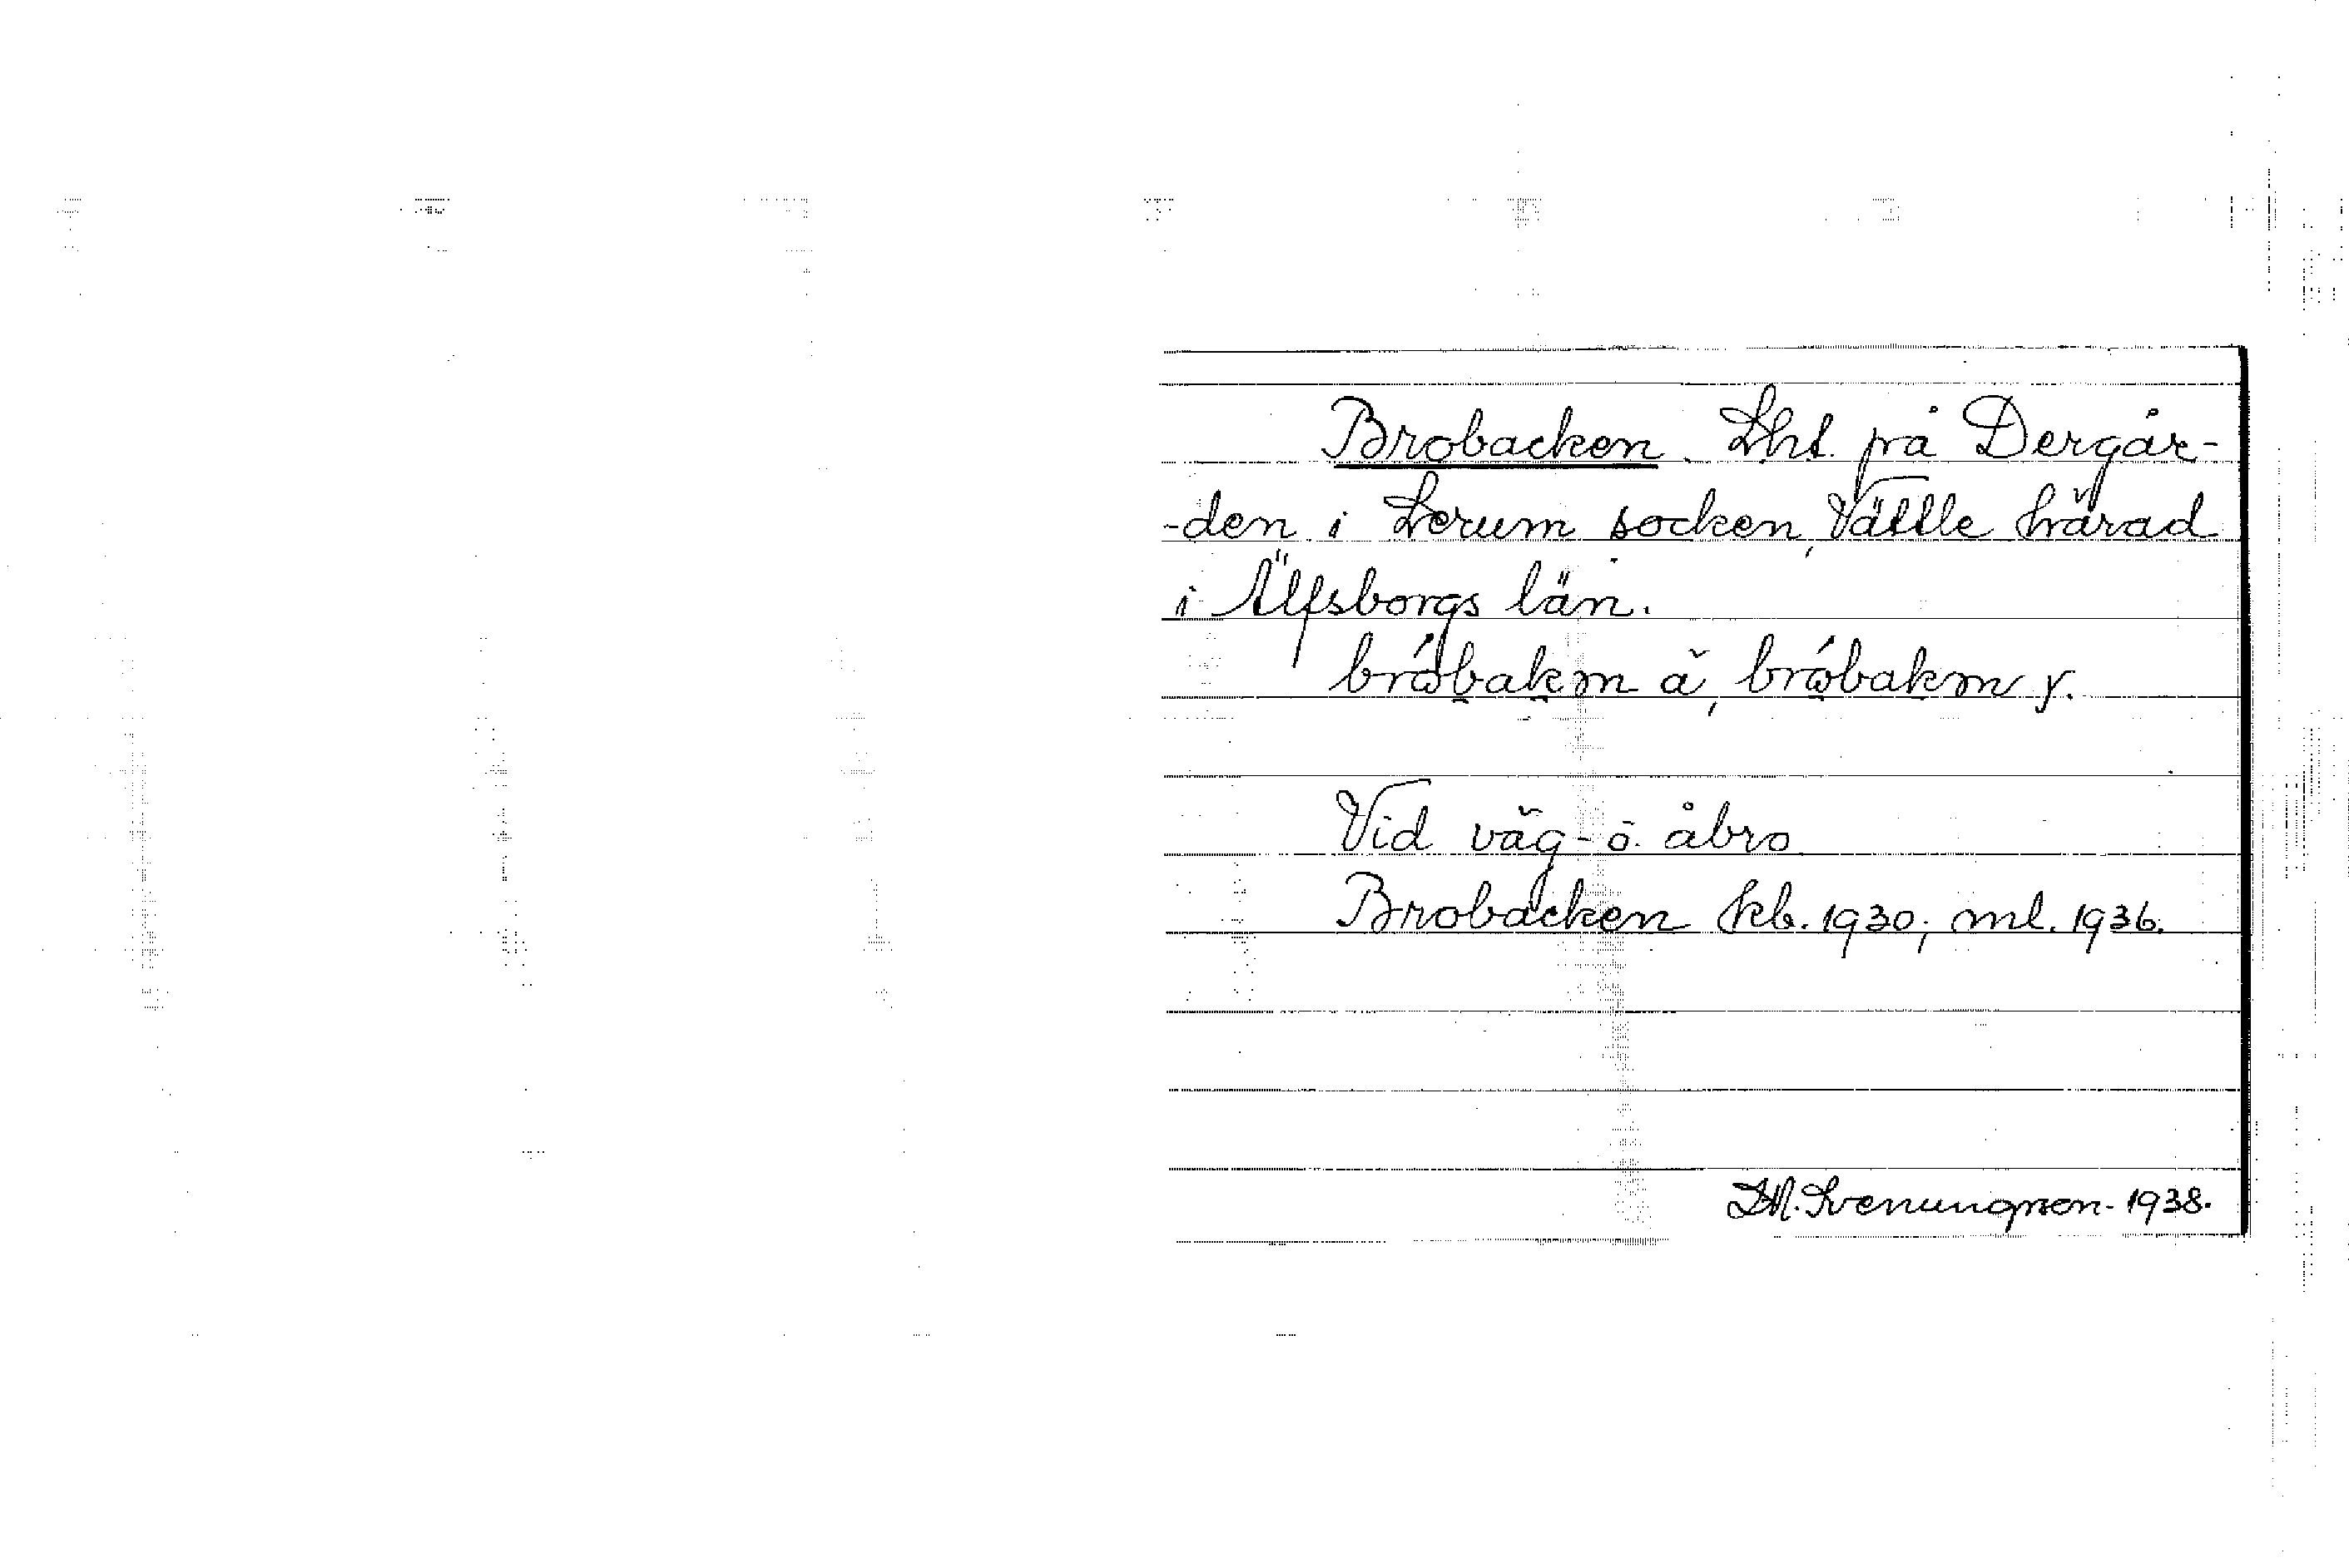 Brobacken. Lht. på Dergår-
-den i Lerum socken, Vättle härad
i Älfsborgs län.
bróbakm̥ ä, bróbakm y.
Vid väg- o. åbro
Brobacken kb. 1930; ml. 1936.
Svenungsson. 1938.